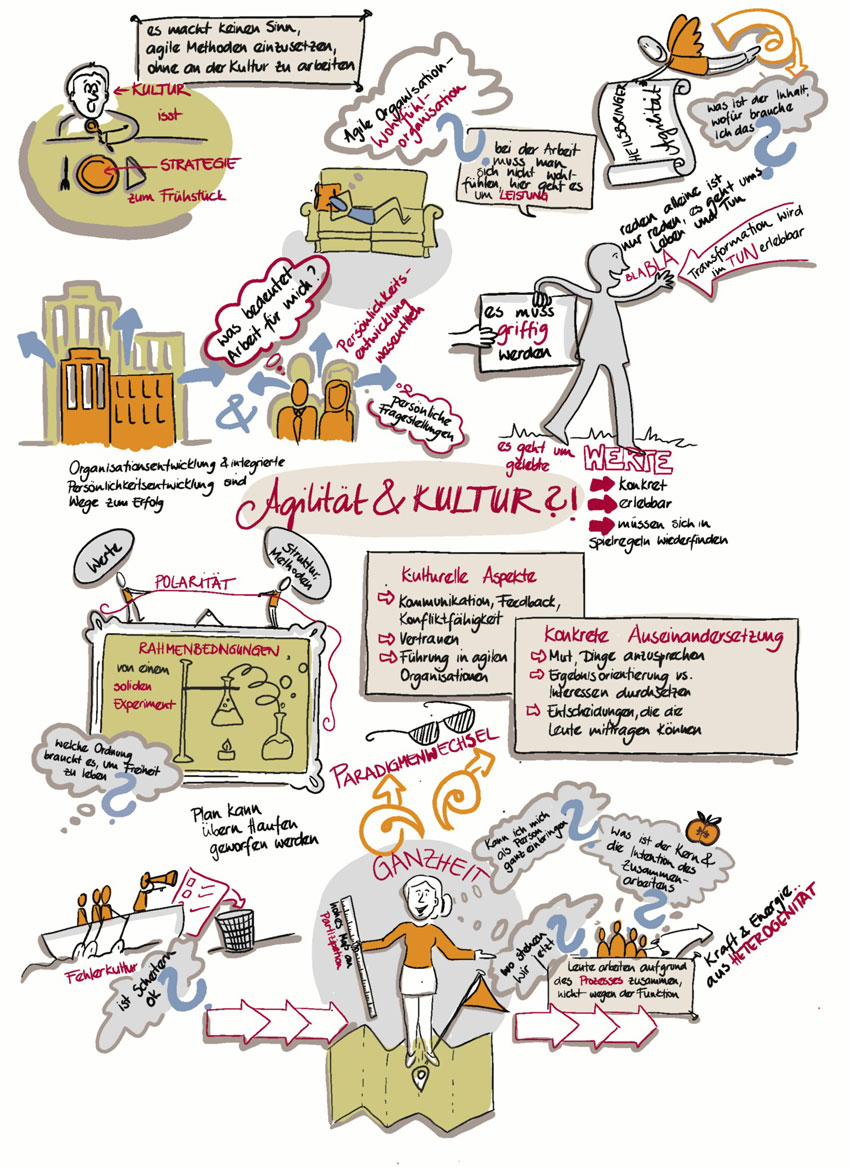 es macht keinen Sinn,
agile Methoden einzusetzen,
ohne an der Kultur zu arbeiten
KULTUR
isst
STRATEGIE
zum Frühstück
Agile Organisation-
Wohlfühl-
organisation
?
bei der Arbeit
muss man
sich nicht wohl-
fühlen, hier geht es
um LEISTUNG
HEILSBRINGER
Agilität
was ist der Inhalt,
wofür brauche
ich das
?
reden alleine ist
nur reden, es geht ums
Leben und Tun
BLABLA
Transformation wird
im TUN erlebbar
es muss
griffig
werden
was bedeutet
Arbeit für mich?
Persönlichkeits-
entwicklung
wesentlich
persönliche
Fragestellungen
&
Organisationsentwicklung & integrierte
Persönlichkeitsentwicklung sind
Wege zum Erfolg
es geht um
gelebte
WERTE
konkret
erlebbar
müssen sich in
Spielregeln wiederfinden
Agilität & KULTUR?!
Werte
Struktur,
Methoden
POLARITÄT
RAHMENBEDINGUNGEN
von einem
soliden
Experiment
welche Ordnung
braucht es, um Freiheit
zu leben
?
Kulturelle Aspekte
Kommunikation, Feedback,
Konfliktfähigkeit
Vertrauen
Führung in agilen
Organisationen
Konkrete Auseinandersetzung
Mut, Dinge anzusprechen
Ergebnisorientierung vs.
Interessen durchsetzen
Entscheidungen, die die
Leute mittragen können
PARADIGMENWECHSEL
Plan kann
übern Haufen
geworfen werden
Fehlerkultur
ist Scheitern
OK
?
GANZHEIT
hohes Maß an
Partizipation
Kann ich mich
als Person
ganz einbringen
?
Was ist der Kern &
die Intention des
Zusammen-
arbeitens
?
wo stehen
wir jetzt
?
Leute arbeiten aufgrund
des Prozesses zusammen,
nicht wegen der Funktion
Kraft & Energie..
aus HETEROGENITÄT